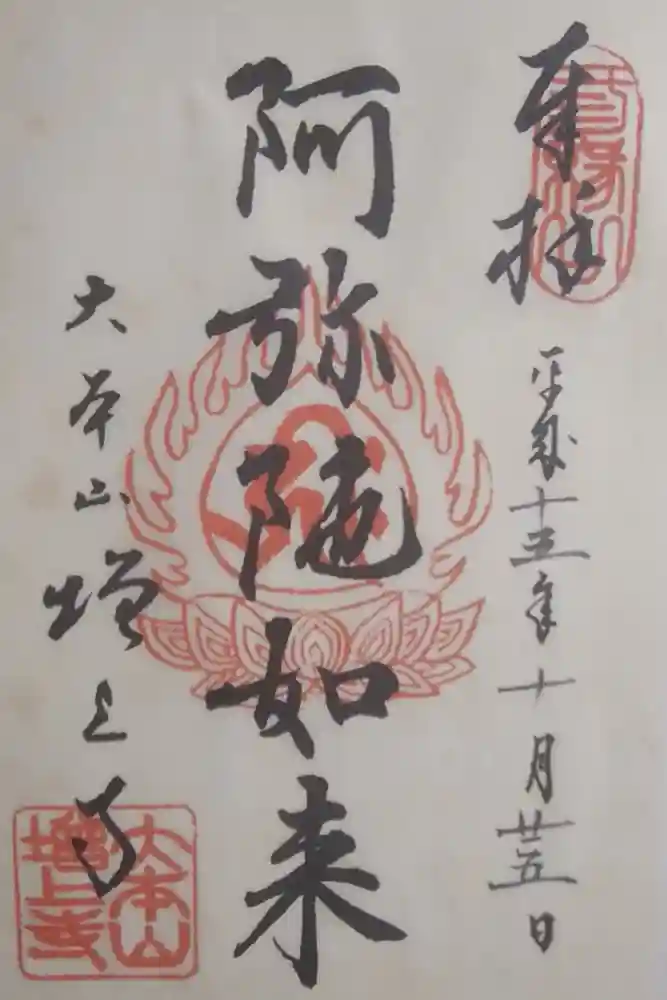 奉拝
平成十三年十月廿五日
阿弥陀如来
大本山増上寺
大本山
増上寺